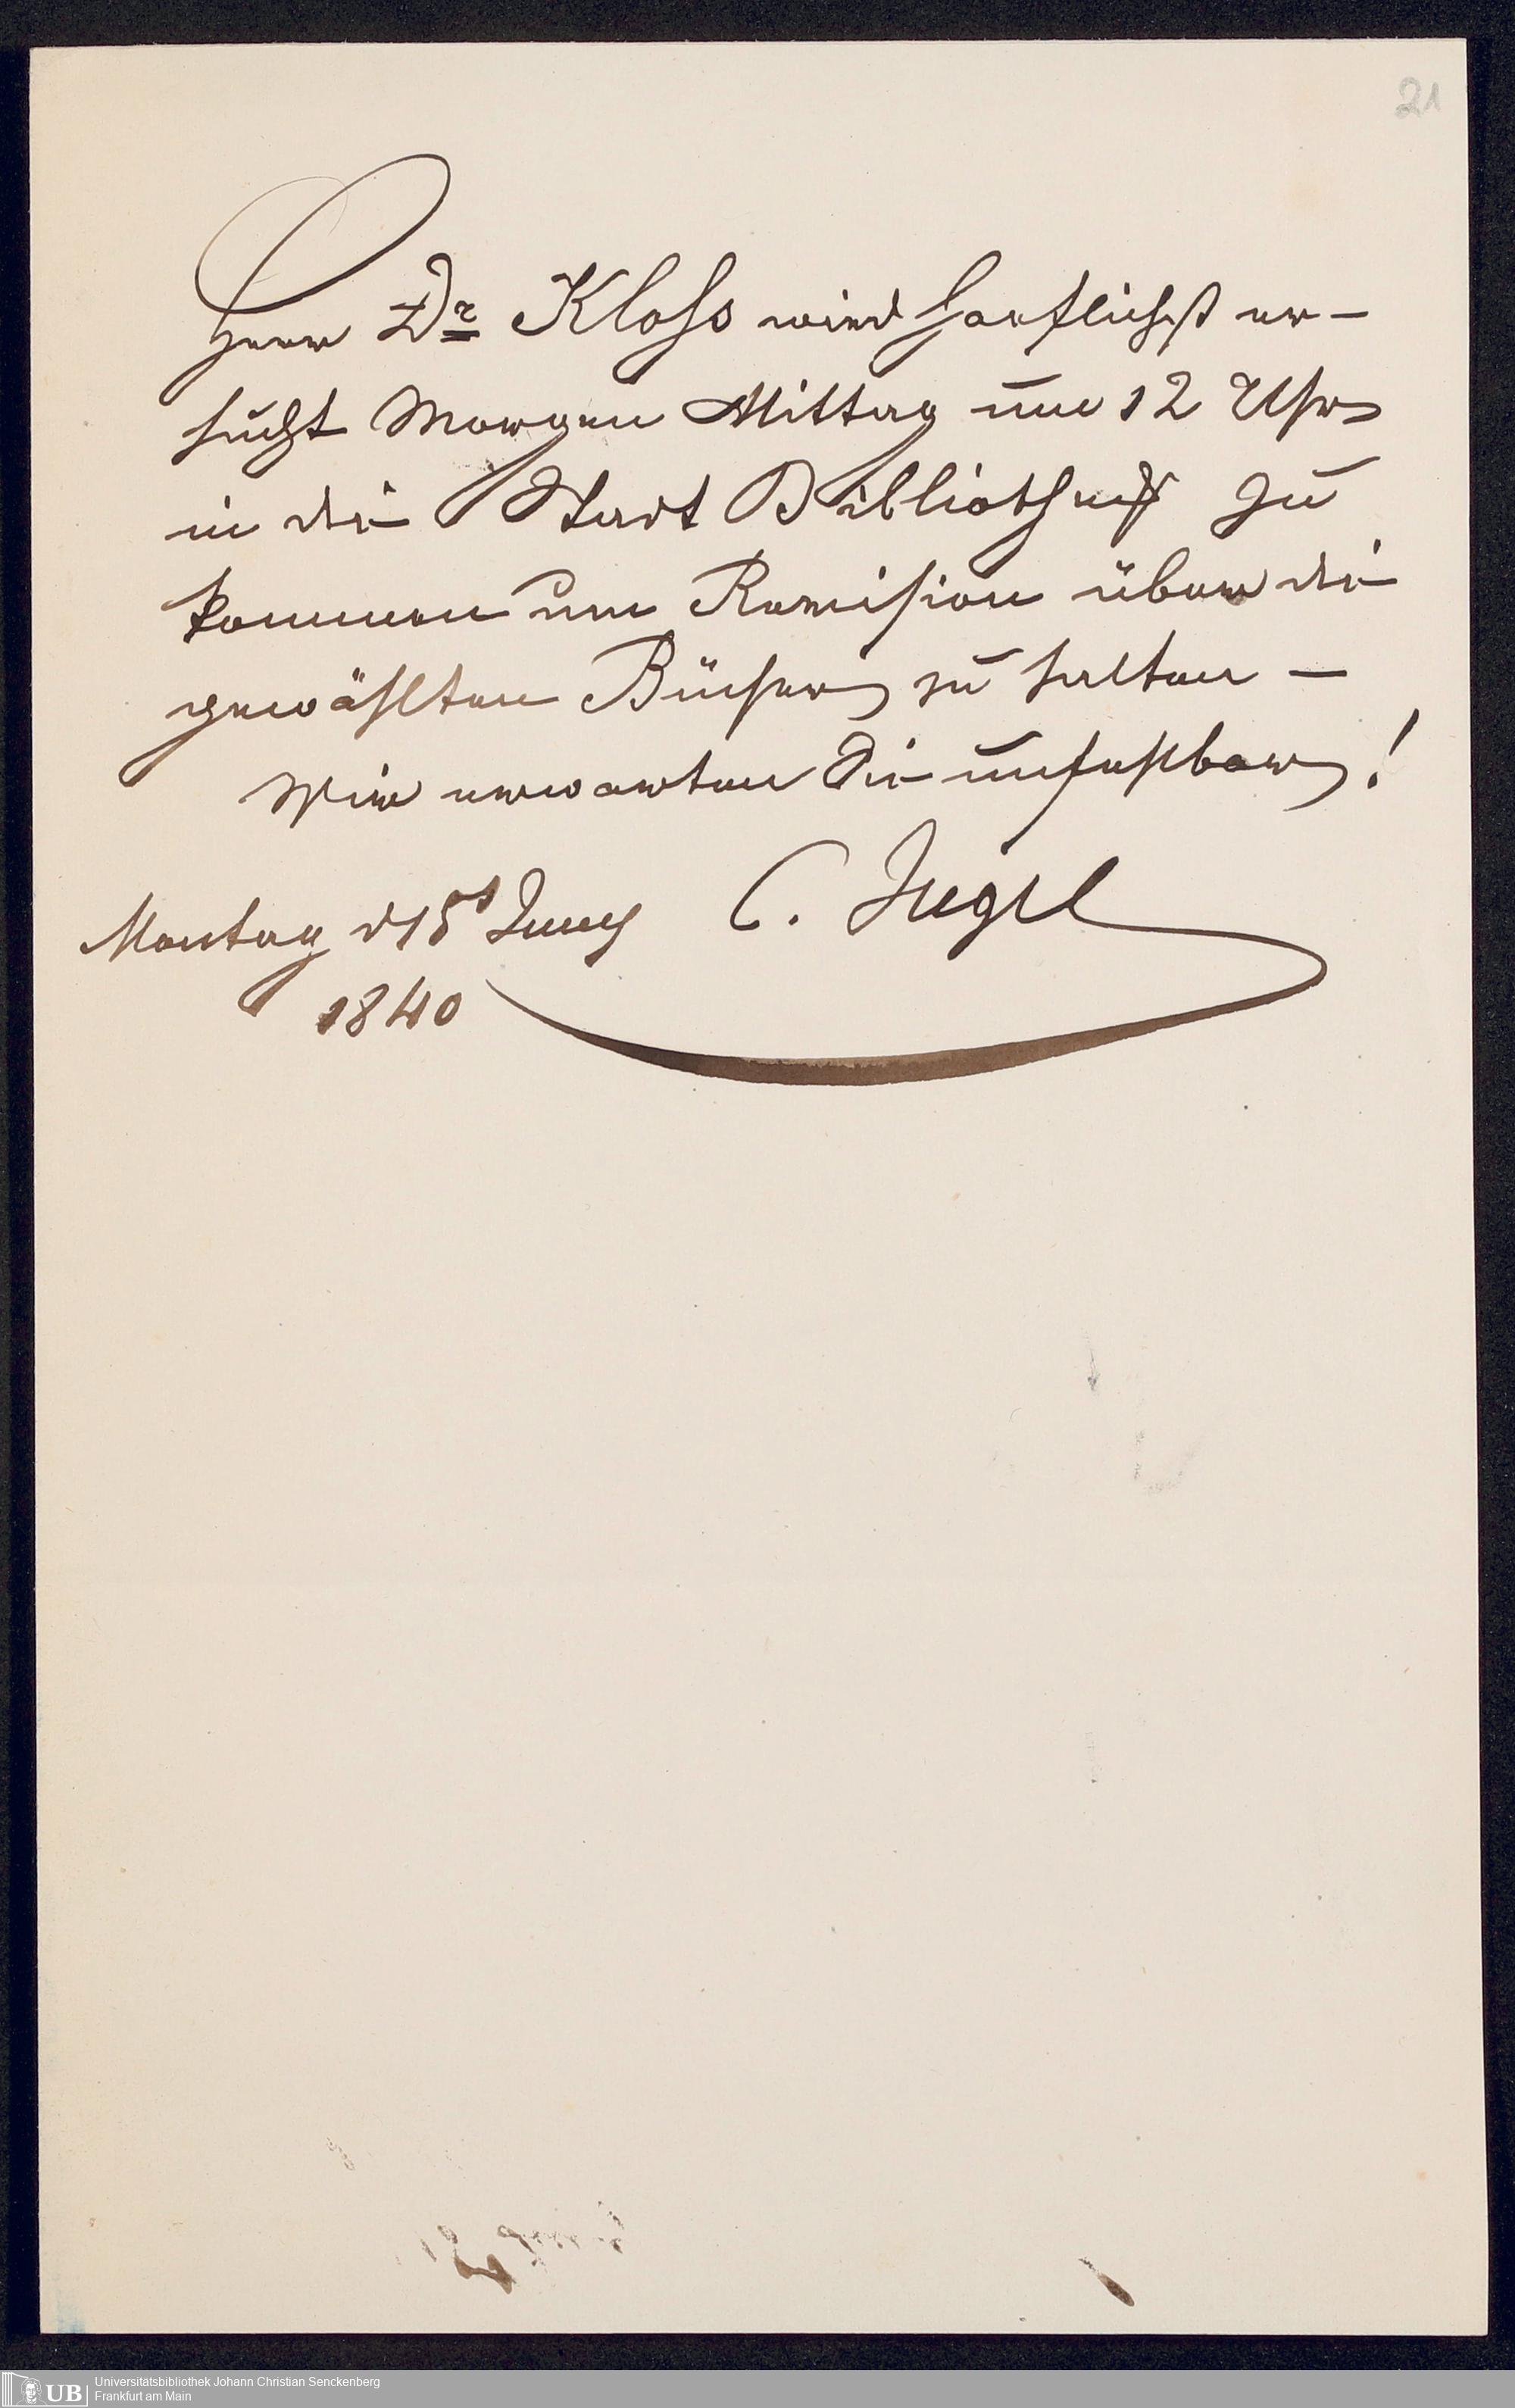 21
Herr Dr Kloss wird hoeflichst er-
sucht Morgen Mittag um 12 Uhr
in die Stadt Bibliothek zu
kommen um Revision über die
gewählten Bücher zu halten –
Wir erwarten Sie unfehlbar!
Montag d 15t Juny C. Jügel
1840
UB
Universitätsbibliothek Johann Christian Senckenberg
Frankfurt am Main